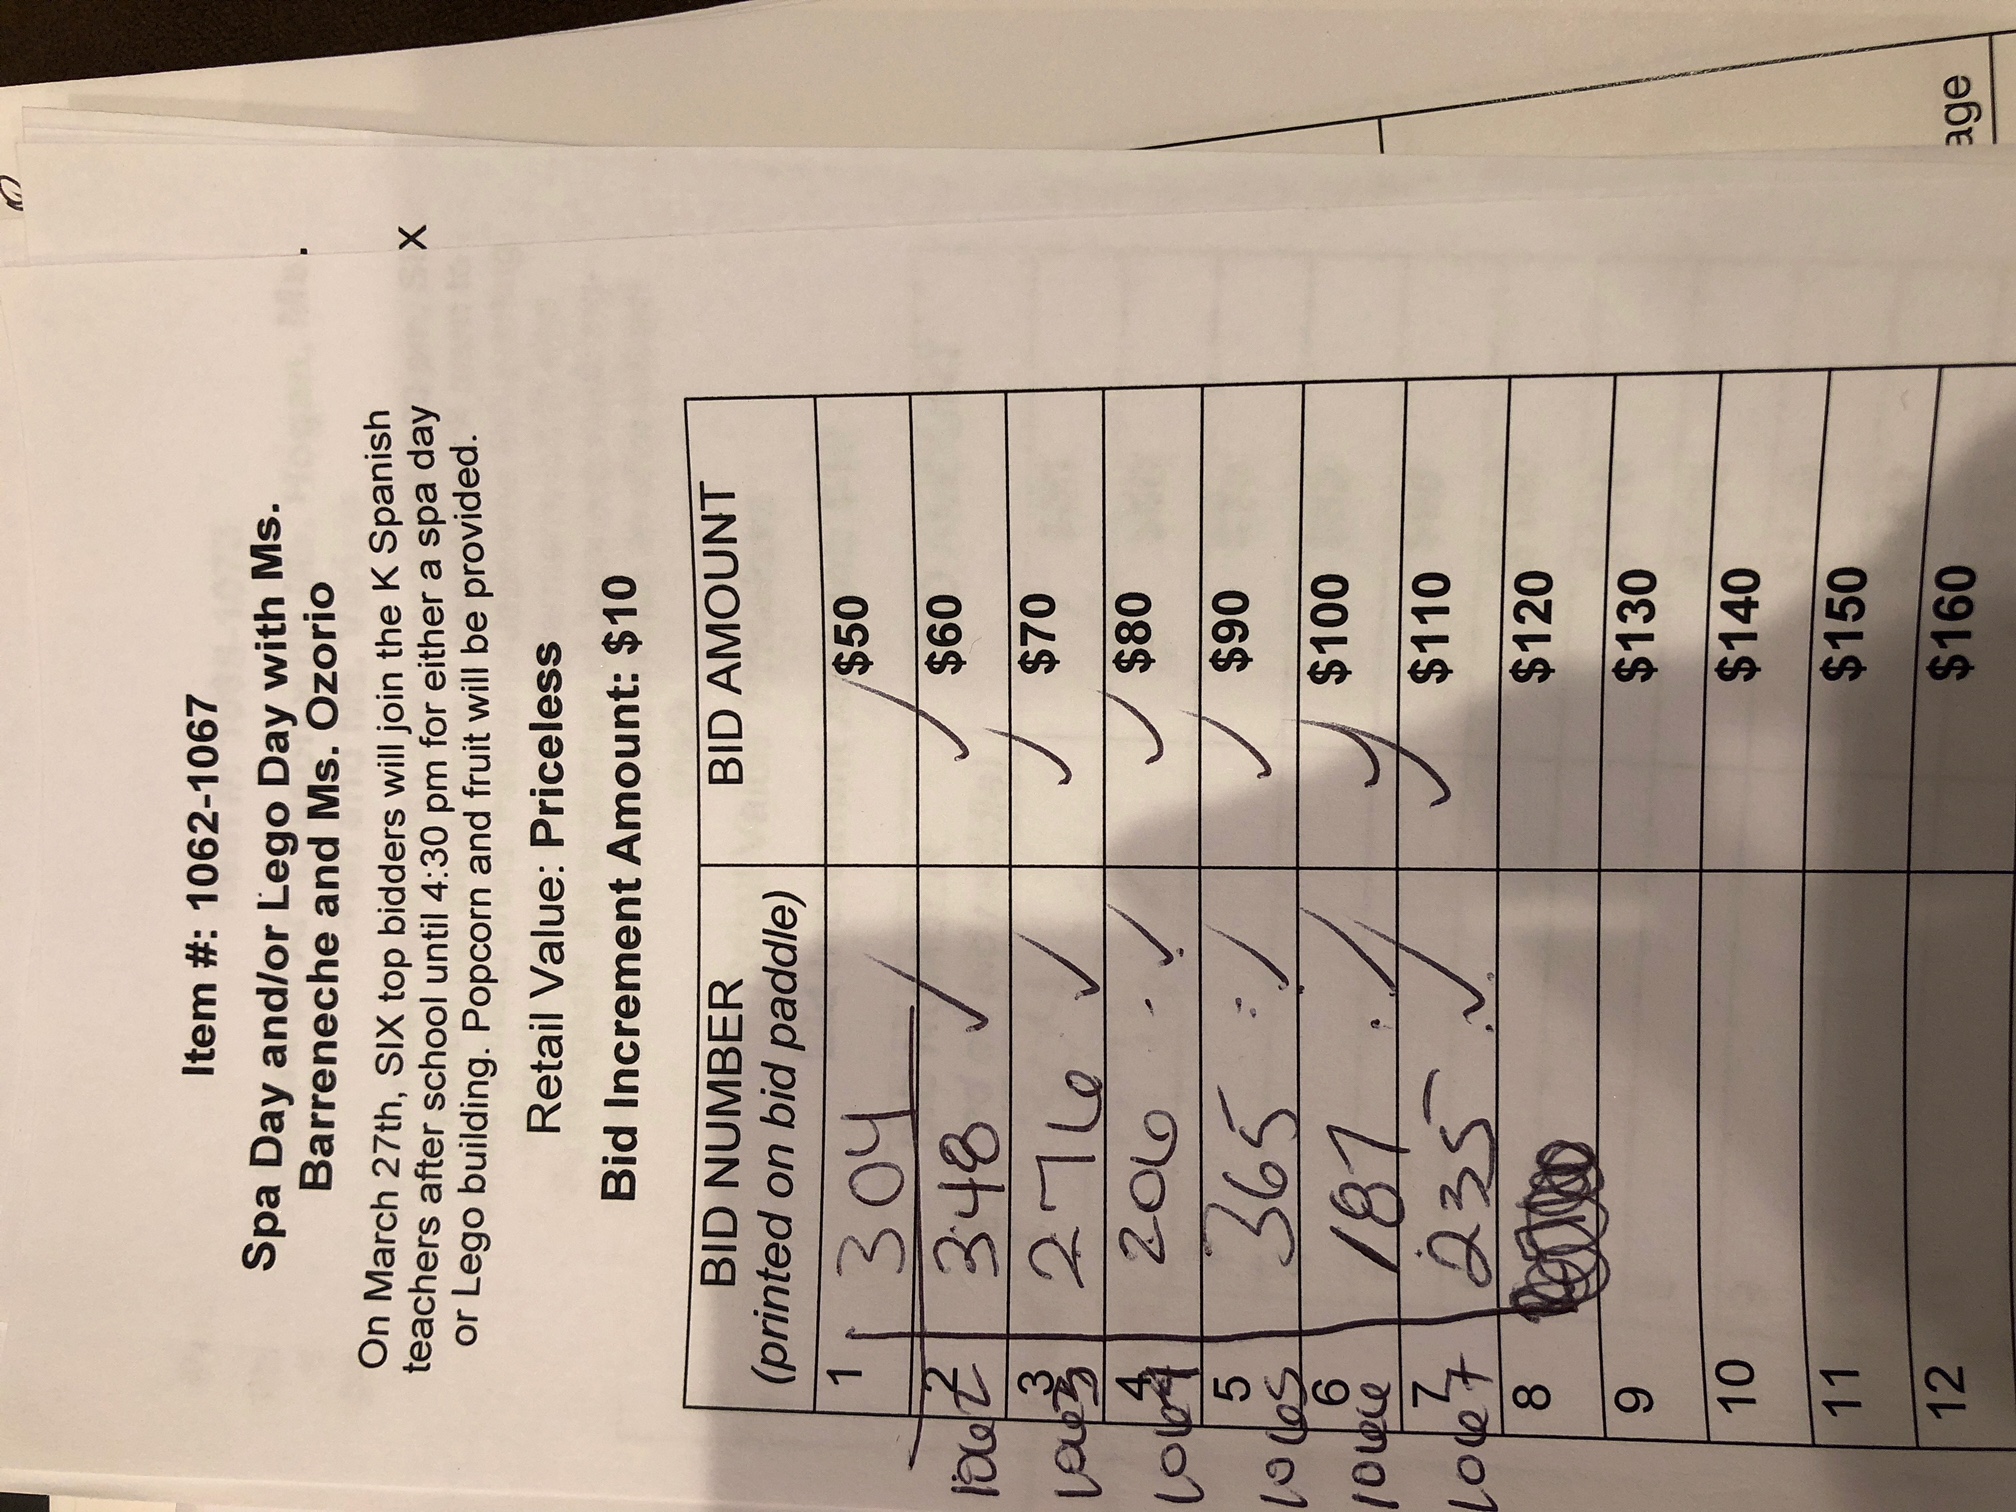 Item #: 1062-1067
Spa Day and/or Lego Day with Ms.
Barreneche and Ms. Ozorio
On March 27th, SIX top bidders will join the K Spanish
teachers after school until 4:30 pm for either a spa day
or Lego building. Popcorn and fruit will be provided.
X
Retail Value: Priceless
Bid Increment Amount: $10
BID NUMBER BID AMOUNT
(printed on bid paddle)
1 304 $50
2 1062 348 $60
3 1063 276 $70
4 1064 206 $80
5 1065 365 $90
6 1066 187 $100
7 1067 235 $110
8 $120
9 $130
10 $140
11 $150
12 $160
age